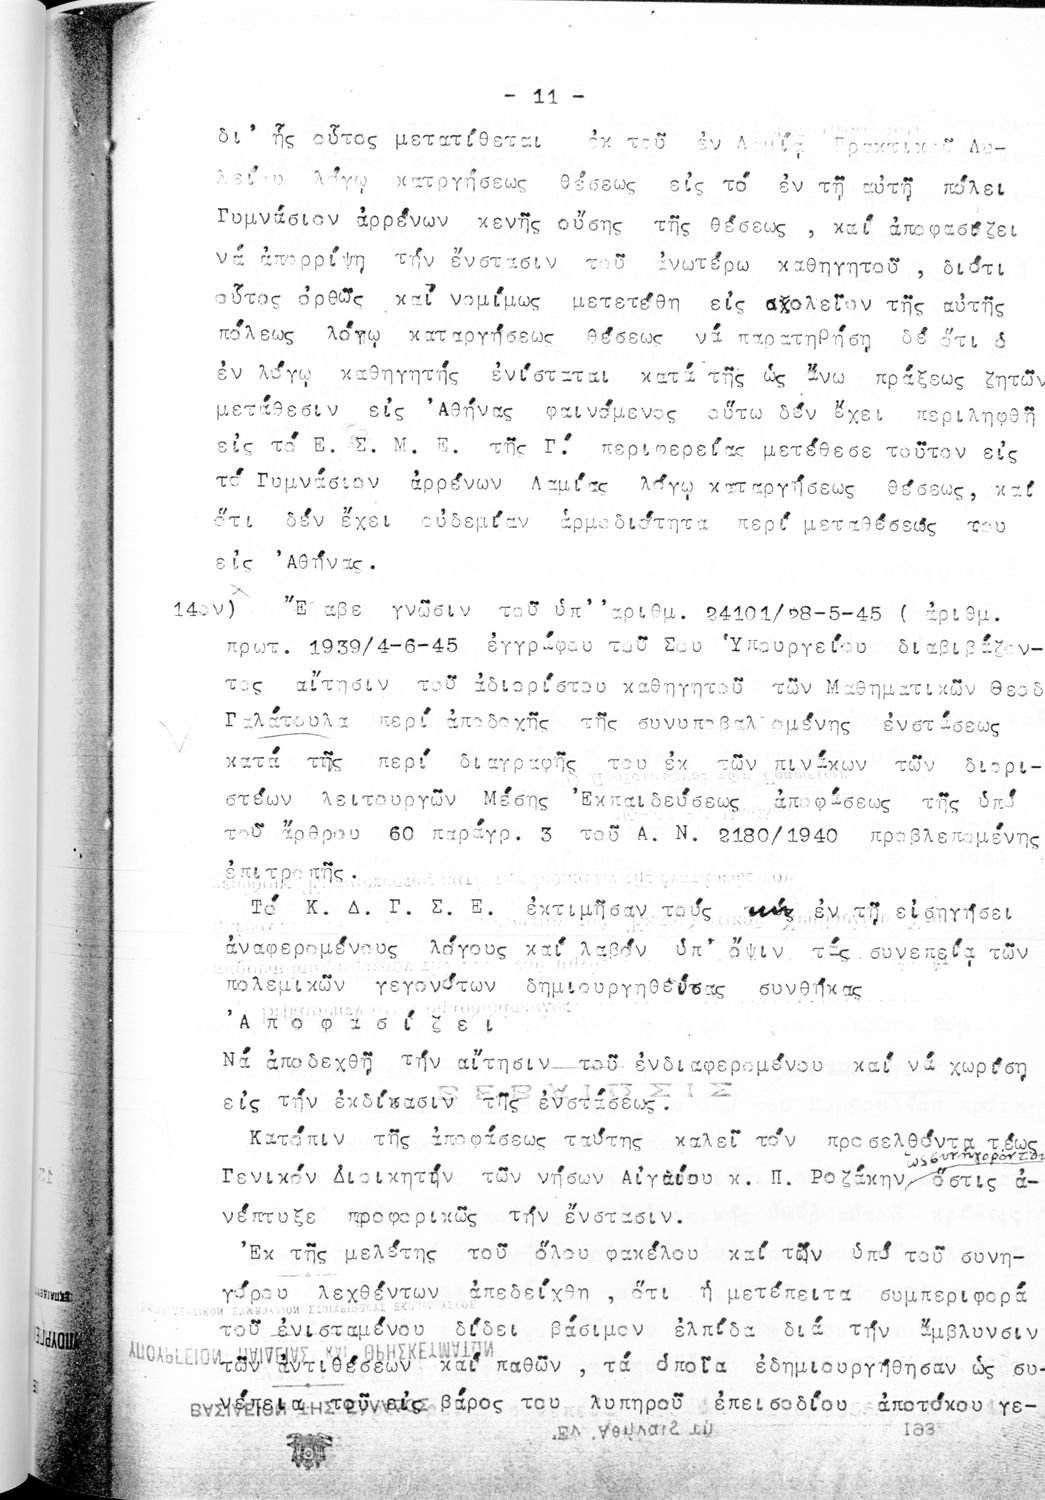 - 11 -
δι' ἧς οὗτος μετατίθεται ἐκ τοῦ ἐν Λαμίᾳ Πρακτικοῦ Λυ-
λείου λόγῳ κατργήσεως θέσεως εἰς τό ἐν τῇ αὐτῇ πόλει
Γυμνάσιον ἀρρένων κενῆς οὔσης τῆς θέσεως , καί ἀποφασίζει
νά ἀπορρίψῃ τήν ἔνστασιν τοῦ ἀνωτέρω καθηγητοῦ , διότι
οὗτος ὀρθῶς καί νομίμως μετετέθη εἰς σχολεῖον τῆς αὐτῆς
πόλεως λόγῳ καταργήσεως θέσεως νά παρατηρήσῃ δέ ὅτι ὁ
ἐν λόγῳ καθηγητής ἐνίσταται κατά τῆς ὡς ἄνω πράξεως ζητῶν
μετάθεσιν εἰς 'Αθήνας φαινόμενος οὕτω δέν ἔχει περιληφθῆ
εἰς τό Ε. Σ. Μ. Ε. τῆς Γ.' περιφερείας μετέθεσε τοῦτον εἰς
τό Γυμνάσιον ἀρρένων Λαμίας λόγῳ καταργήσεως θέσεως, καί
ὅτι δέν ἔχει οὐδεμίαν ἁρμοδιότητα περί μεταθέσεώς του
εἰς 'Αθήνας.
14ον) Ἔλαβε γνῶσιν τοῦ ὑπ' 'αριθμ. 24101/28-5-45 ( ἀριθμ.
πρωτ. 1939/4-6-45 ἐγγράφου τοῦ Σου Ὑπουργείου διαβιβάζον-
τος αἴτησιν τοῦ ἀδιορίστου καθηγητοῦ τῶν Μαθηματικῶν Θεοδ
Γαλάτουλα περί ἀποδοχῆς τῆς συνυποβαλλομένης ἐνστάσεως
κατά τῆς περί διαγραφῆς του ἐκ τῶν πινάκων τῶν διορι-
στέων λειτουργῶν Μέσης Ἐκπαιδεύσεως ἀποφάσεως τῆς ὑπό
τοῦ ἄρθρου 60 παράγρ. 3 τοῦ Α. Ν. 2180/1940 προβλεπομένης
ἐπιτροπῆς.
Τό Κ. Δ. Γ. Σ. Ε. ἐκτιμῆσαν τούς ἐν τῇ εἰσηγήσει
ἀναφερομένους λόγους καί λαβόν ὑπ' ὄψιν τάς συνεπείᾳ τῶν
πολεμικῶν γεγονότων δημιουργηθείσας συνθήκας
'Α π ο φ α σ ί ζ ε ι
Νά ἀποδεχθῇ τήν αἴτησιν τοῦ ἐνδιαφερομένου καί νά χωρίσῃ
εἰς τήν ἐκδίκασιν τῆς ἐνστάσεως.
Κατόπιν τῆς ἀποφάσεως ταύτης καλεῖ τόν προσελθόντα τέως
Γενικόν Διοικητήν τῶν νήσων Αἰγαίου κ. Π. Ροζάκην ὡς συνήγορόν του ὅστις ἀ-
νέπτυξε προφορικῶς τήν ἔνστασιν.
Ἐκ τῆς μελέτης τοῦ ὅλου φακέλου καί τῶν ὑπό τοῦ συνη-
γόρου λεχθέντων ἀπεδείχθη , ὅτι ἡ μετέπειτα συμπεριφορά
τοῦ ἐνισταμένου δίδει βάσιμον ἐλπίδα διά τήν ἄμβλυνσιν
τῶν ἀντιθέσεων καί παθῶν , τά ὁποῖα ἐδημιουργήθησαν ὡς συ-
νέπεια τοῦ εἰς βάρος του λυπηροῦ ἐπεισοδίου ἀποτόκου γε-
ΥΠΟΥΡΓΕΙΟΝ ΠΑΙΔΕΙΑΣ ΚΑΙ ΘΡΗΣΚΕΥΜΑΤΩΝ
ΒΑΣΙΛΕΙΟΝ ΤΗΣ ΕΛΛΑΔΟΣ
Ἐν Ἀθήναις τῇ 193